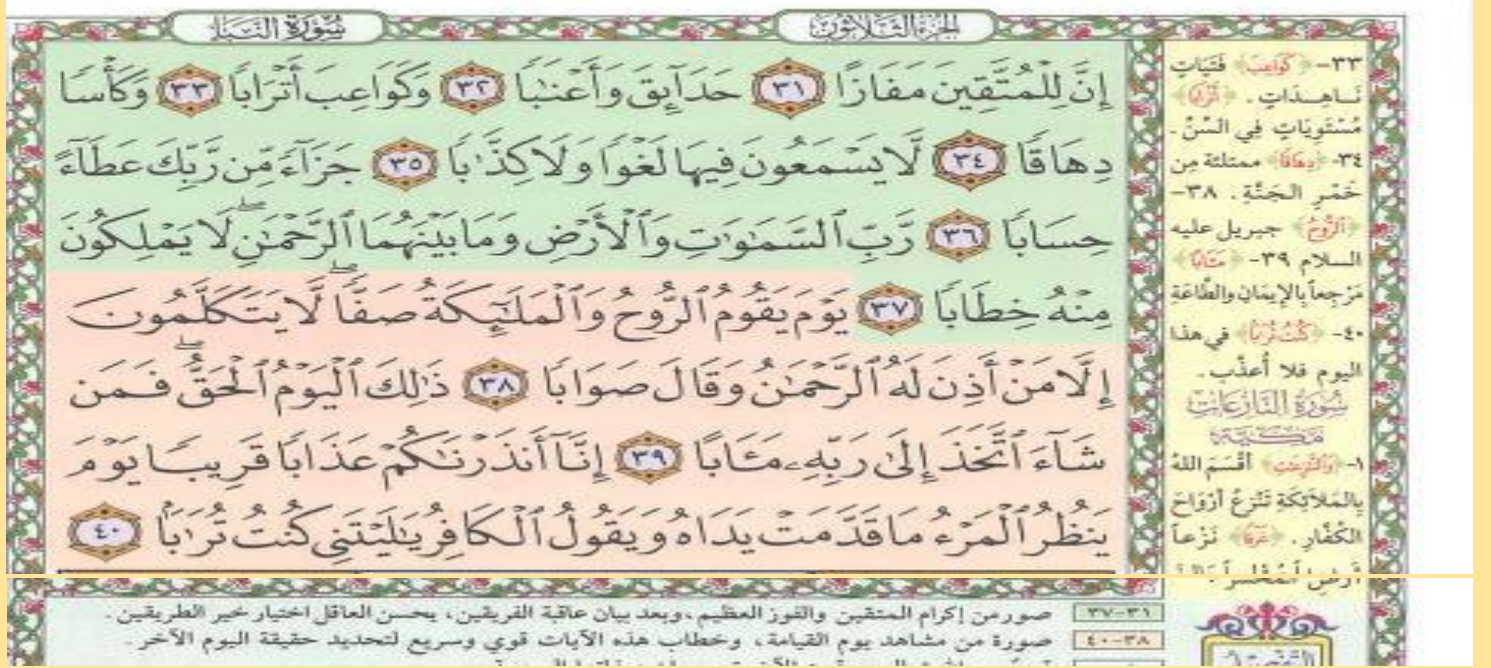 سُورَةُ النَّبَإِ
الجُزْءُ الثَّلَاثُونَ
إِنَّ لِلْمُتَّقِينَ مَفَازًا ﴿٣١﴾ حَدَآئِقَ وَأَعْنَٰبًا ﴿٣٢﴾ وَكَوَاعِبَ أَتْرَابًا ﴿٣٣﴾ وَكَأْسًا
دِهَاقًا ﴿٣٤﴾ لَّا يَسْمَعُونَ فِيهَا لَغْوًا وَلَا كِذَّٰبًا ﴿٣٥﴾ جَزَآءً مِّن رَّبِّكَ عَطَآءً
حِسَابًا ﴿٣٦﴾ رَّبِّ ٱلسَّمَٰوَٰتِ وَٱلْأَرْضِ وَمَا بَيْنَهُمَا ٱلرَّحْمَٰنِۖ لَا يَمْلِكُونَ
مِنْهُ خِطَابًا ﴿٣٧﴾ يَوْمَ يَقُومُ ٱلرُّوحُ وَٱلْمَلَٰٓئِكَةُ صَفًّاۖ لَّا يَتَكَلَّمُونَ
إِلَّا مَنْ أَذِنَ لَهُ ٱلرَّحْمَٰنُ وَقَالَ صَوَابًا ﴿٣٨﴾ ذَٰلِكَ ٱلْيَوْمُ ٱلْحَقُّۖ فَمَن
شَآءَ ٱتَّخَذَ إِلَىٰ رَبِّهِۦ مَـَٔابًا ﴿٣٩﴾ إِنَّآ أَنذَرْنَٰكُمْ عَذَابًا قَرِيبًا يَوْمَ
يَنظُرُ ٱلْمَرْءُ مَا قَدَّمَتْ يَدَاهُ وَيَقُولُ ٱلْكَافِرُ يَٰلَيْتَنِى كُنتُ تُرَٰبًۢا ﴿٤٠﴾
٣٣- ﴿كَوَاعِبَ﴾ فَتَيَاتٍ
نَاهِدَاتٍ. ﴿أَتْرَابًا﴾
مُسْتَوِيَاتٍ فِي السِّنِّ.
٣٤- ﴿دِهَاقًا﴾ ممتلئة مِن
خَمْرِ الجَنَّةِ. ٣٨-
﴿ٱلرُّوحُ﴾ جبريل عليه
السلام ٣٩- ﴿مَـَٔابًا﴾
مَرْجعاً بالإيمَانِ والطَّاعَةِ
٤٠- ﴿كُنتُ تُرَٰبًا﴾ في هذا
اليوم فلا أُعذَّب.
سُورَةُ النَّازِعَاتِ
مَكِّيَّة
١- ﴿وَٱلنَّٰزِعَٰتِ﴾ أقْسَمَ اللهُ
بِالمَلَائِكَةِ تَنْزِعُ أرْوَاحَ
الكُفَّارِ. ﴿غَرْقًا﴾ نَزْعاً
٣١-٣٧ صور من إكرام المتقين والفوز العظيم، وبعد بيان عاقبة الفريقين، يحسن العاقل اختيار خير الطريقين.
٣٨-٤٠ صورة من مشاهد يوم القيامة، وخطاب هذه الآيات قوي وسريع لتحديد حقيقة اليوم الآخر.